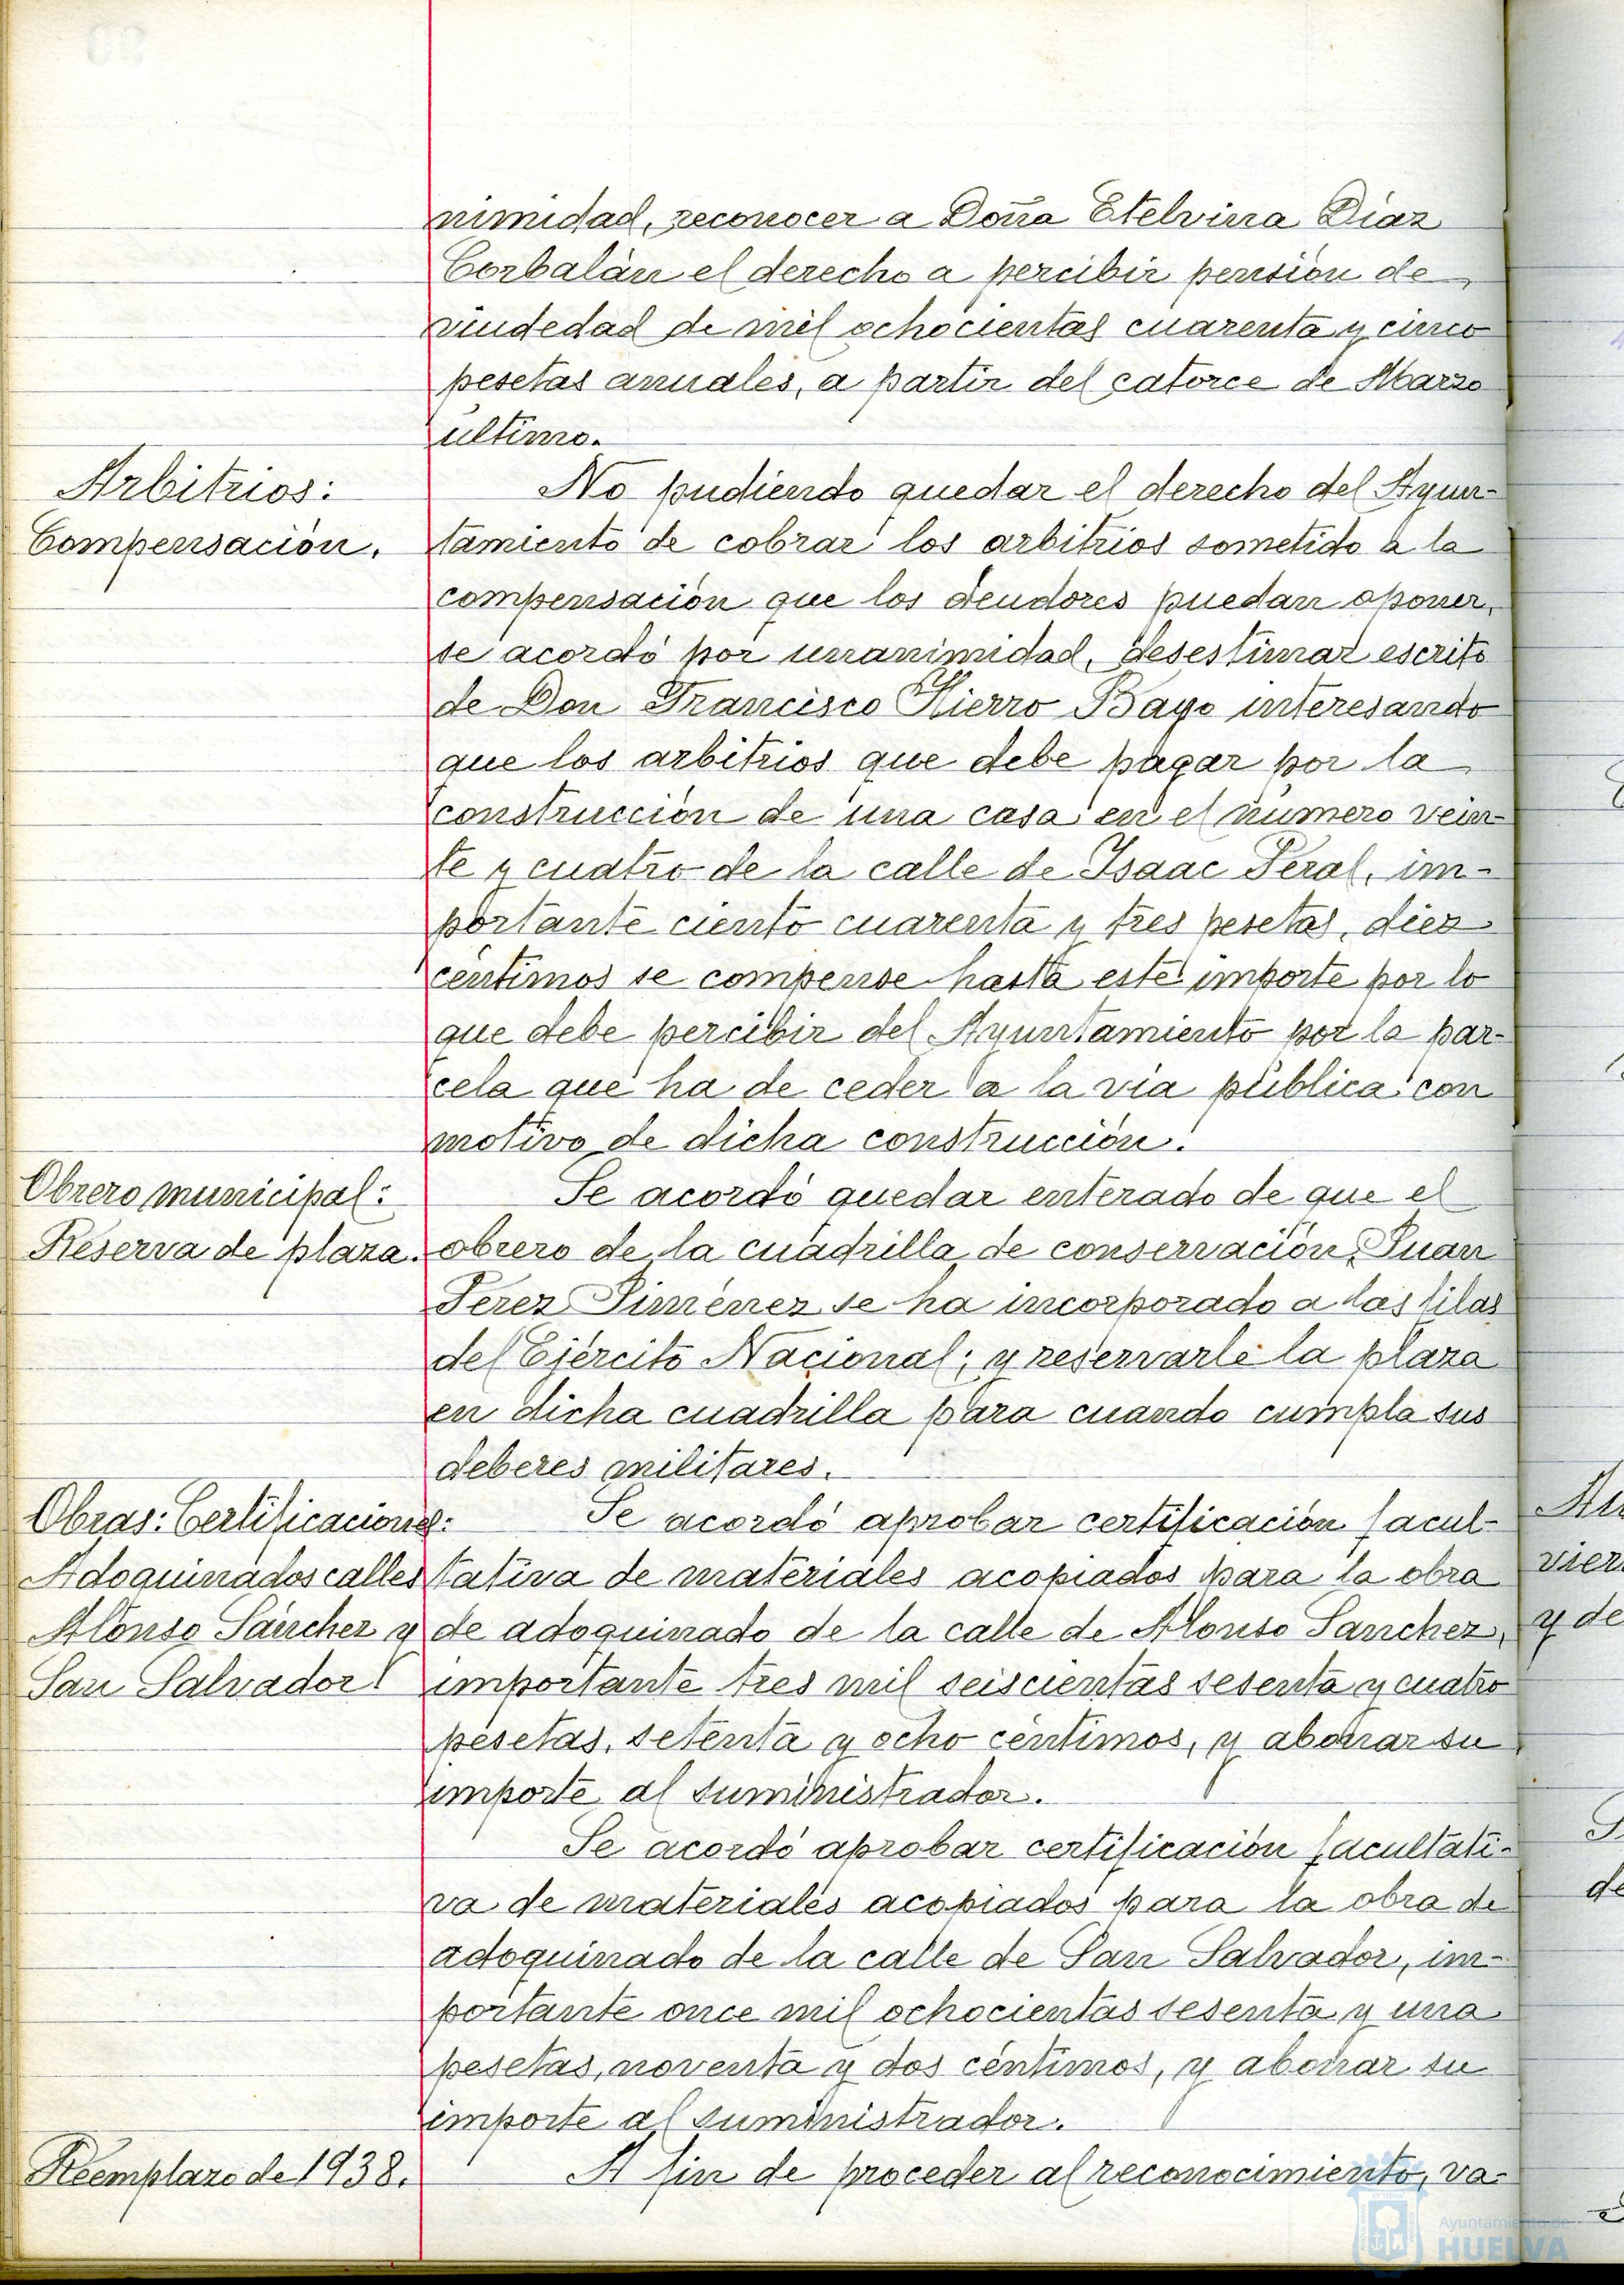 nimidad, reconocer a Doña Etelvina Díaz
Corbalán el derecho a percibir pensión de
viudedad de mil ochocientas cuarenta y cinco
pesetas anuales, a partir del catorce de Marzo
último.
Arbitrios:
Compensación.
No pudiendo quedar el derecho del Ayun-
tamiento de cobrar los arbitrios sometido a la
compensación que los deudores puedan oponer,
se acordó por unanimidad, desestimar escrito
de Don Francisco Hierro Bayo interesando
que los arbitrios que debe pagar por la
construcción de una casa en el número vein-
te y cuatro de la calle de Isaac Peral, im-
portante ciento cuarenta y tres pesetas, diez
céntimos se compense hasta este importe por lo
que debe percibir del Ayuntamiento por la par-
cela que ha de ceder a la vía pública con
motivo de dicha construcción.
Obrero municipal:
Reserva de plaza.
Se acordó quedar enterado de que el
obrero de la cuadrilla de conservación, Juan
Perez Jiménez se ha incorporado a las filas
del Ejército Nacional; y reservarle la plaza
en dicha cuadrilla para cuando cumpla sus
deberes militares.
Obras: Certificaciones:
Adoquinados calles
Alonso Sánchez y
San Salvador.
Se acordó aprobar certificación facul-
tativa de materiales acopiados para la obra
de adoquinado de la calle de Alonso Sanchez,
importante tres mil seiscientas sesenta y cuatro
pesetas, setenta y ocho céntimos, y abonar su
importe al suministrador.
Se acordó aprobar certificación facultati-
va de materiales acopiados para la obra de
adoquinado de la calle de San Salvador, im-
portante once mil ochocientas sesenta y una
pesetas, noventa y dos céntimos, y abonar su
importe al suministrador.
Reemplazo de 1938.
A fin de proceder al reconocimiento, va-
vier
y de
de
Ayuntamiento de
HUELVA